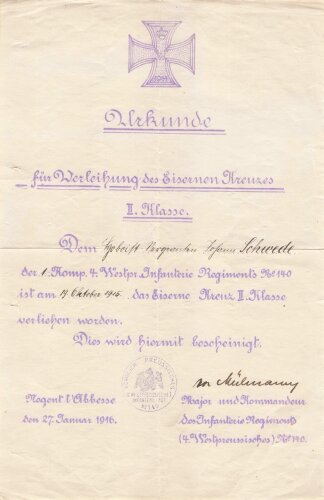 W
1914
Urkunde
für Verleihung des Eisernen Kreuzes
II. Klasse.
Dem Johann Schwede
der 1. Komp. 4. Westpr. Infanterie Regiments No 140
ist am Oktober 1915 das Eiserne Kreuz II. Klasse
verliehen worden.
Dies wird hiermit bescheinigt.
Nogent l'Abbesse
den 27. Januar 1916.
von Mülmann
Major und Kommandeur
des Infanterie Regiments
(4. Westpreussisches) No 140.